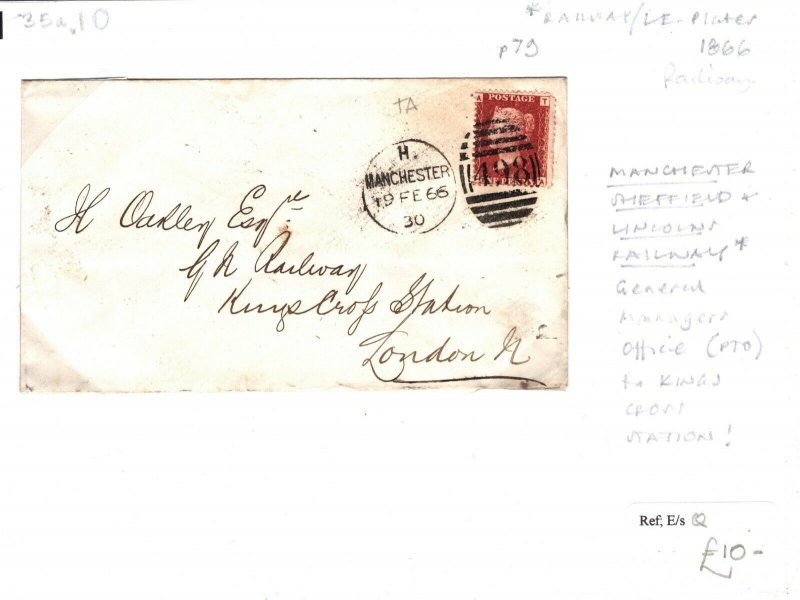 35a,10
*RAILWAY/LE-Plates
p79
1866
Railway
TA
A POSTAGE T
H
MANCHESTER
19 FE 66
30
498
H Oakley Esqre
G N Railway
Kings Cross Station
London N
MANCHESTER
SHEFFIELD &
LINCOLNS
RAILWAY*
General
Managers
Office (PTO)
to KINGS
CROSS
STATION!
Ref; E/s Q
£10-